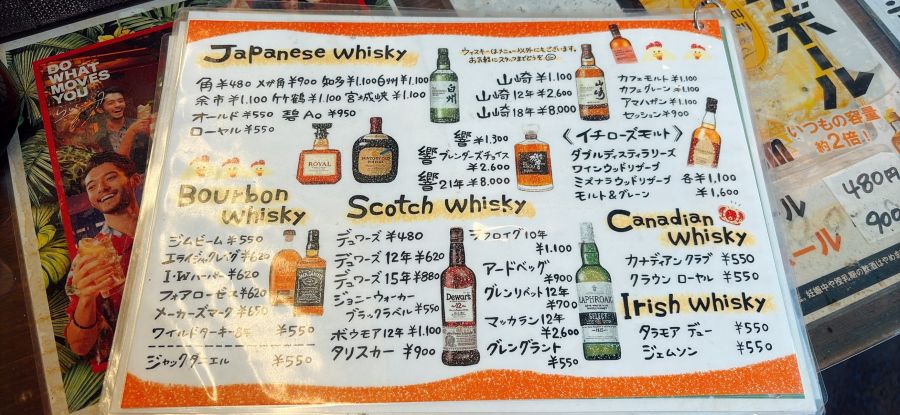 DO
WHAT
MOVES
YOU
Japanese Whisky
角 ¥480 メガ角 ¥900 知多 ¥1.100 6yrv ¥1.100
余市 ¥1.100 竹鶴 ¥1.100 宮城峡 ¥1.100
オールド ¥550 碧Ao ¥950
ローヤル ¥550
ウィスキーはメニュー以外にもございます。
お気軽にスタッフまでどうぞ
白州
山崎 ¥1.100
山崎12年 ¥2.600
山崎18年 ¥8.000
響 ¥1.300
響 ブレンダーズチョイス
¥2.600
響 21年 ¥8.000
カフェモルト ¥1.100
カフェグレーン ¥1.100
アマハガン ¥1.100
セッション ¥900
《イチローズモルト》
ダブルディスティラリーズ
ワインウッドリザーブ
ミズナラウッドリザーブ 各¥1.100
モルト&グレーン ¥1.600
ROYAL
Bourbon
Whisky
ジムビーム ¥550
エライジャクレイグ ¥620
I・Wハーパー ¥620
フォアローゼス ¥620
メーカーズマーク ¥650
ワイルドターキー8年 ¥550
ジャックダニエル ¥550
Scotch Whisky
デュワーズ ¥480
デュワーズ 12年 ¥620
デュワーズ 15年 ¥880
ジョニーウォーカー
ブラックラベル ¥550
ボウモア12年 ¥1.100
タリスカー ¥900
Dewar's
12
ラフロイグ10年
¥1.100
アードベッグ
¥900
グレンリベット12年
¥700
マッカラン12年
¥2.600
グレングラント
¥550
LAPHROAIG
SELECT
Canadian
Whisky
カナディアンクラブ ¥550
クラウン ローヤル ¥550
Irish Whisky
タラモア デュー ¥550
ジェムソン ¥550
いつもの容量
約2倍!
480円
900